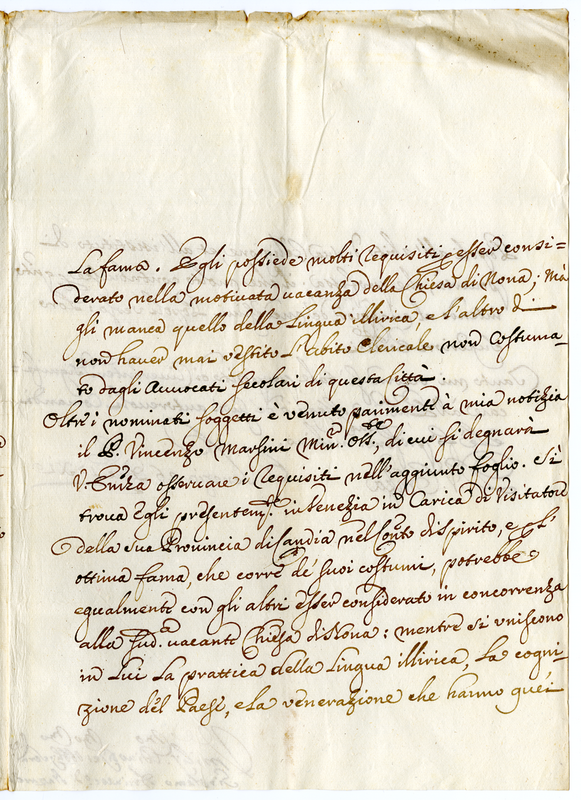 La fama. Egli possiede molti requisiti p esser consi=
derato nella motivata vacanza della Chiesa di Nona; Mà
gli manca quello della Lingua illirica, e l'altro di
non haver mai vestito l'abito Clericale non costuma-
to dagli Avvocati secolari di questa Città.
Oltre i nominati soggetti è venuto parimente à mia notizia
il P. Vincenzo Marsini Min: Oss:, di cui si degnarà
V. Emza osservare i requisiti nell'aggiunto foglio. Si
trova Egli presentem: in Venezia in Carica di Visitatore
della sua Provincia di Candia nel Conto di Spirito, e p l'
ottima fama, che corre de' suoi costumi, potrebbe
egualmente con gli altri esser considerato in concorrenza
alla sud.a vacante Chiesa di Nona: mentre si uniscono
in Lui La prattica della Lingua illirica, La cogni-
zione del Paese, e La venerazione che hanno quei